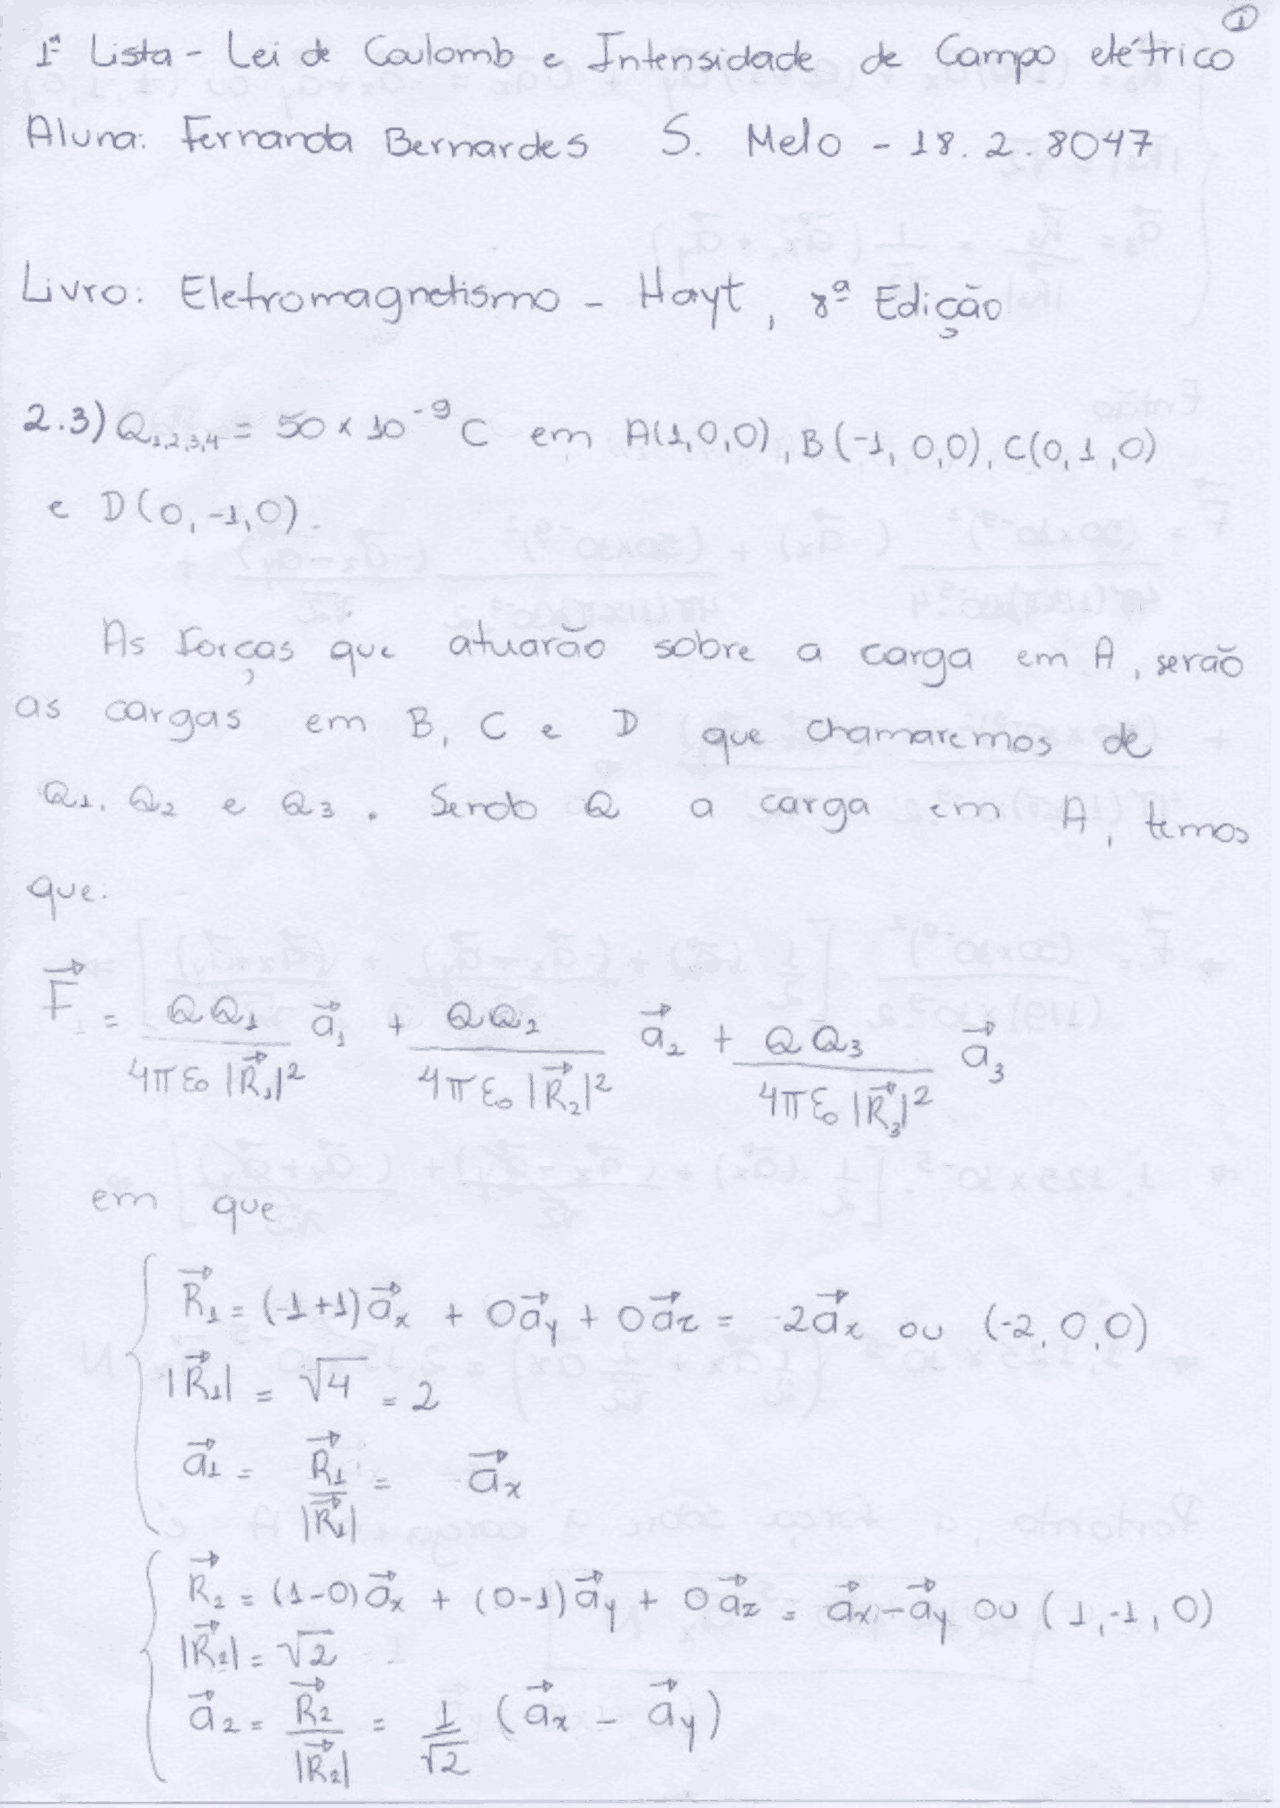 1
1ª Lista - Lei de Coulomb e Intensidade de Campo elétrico
Aluna: Fernanda Bernardes S. Melo - 18.2.8047
Livro: Eletromagnetismo - Hayt, 8ª Edição
2.3) Q1,2,3,4 = 50 x 10^-9 C em A(1,0,0), B(-1,0,0), C(0,1,0)
e D(0,-1,0).
As forças que atuarão sobre a carga em A, serão
as cargas em B, C e D que chamaremos de
Q1, Q2 e Q3. Sendo Q a carga em A, temos
que:
F⃗ = QQ1/(4πε0 |R⃗1|²) a⃗1 + QQ2/(4πε0 |R⃗2|²) a⃗2 + QQ3/(4πε0 |R⃗3|²) a⃗3
em que
R⃗1 = (-1+1)a⃗x + 0a⃗y + 0a⃗z = -2a⃗x ou (-2,0,0)
|R⃗1| = √4 = 2
a⃗1 = R⃗1/|R⃗1| = -a⃗x
R⃗2 = (1-0)a⃗x + (0-1)a⃗y + 0a⃗z = a⃗x - a⃗y ou (1,-1,0)
|R⃗2| = √2
a⃗2 = R⃗2/|R⃗2| = 1/√2 (a⃗x - a⃗y)